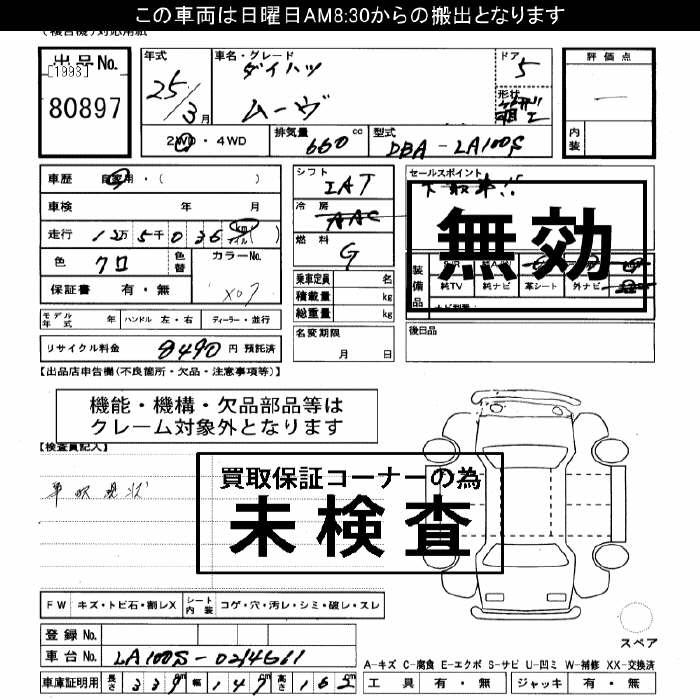 この車両は日曜日AM8:30からの搬出となります
(複合機)対応用紙
出品No.
[1993]
80897
年式
25/3月
車名・グレード
ダイハツ
ムーヴ
ドア
5
形状
評価点
内装
2WD・4WD
排気量 660 cc
型式 DBA-LA100S
車歴 自家用・( )
車検 年 月
走行 12万5千036 km マイル( )
色 クロ
色替
カラーNo.
X07
保証書 有・無
シフト IAT
冷房 AAC
燃料 G
乗車定員 名
積載量 kg
総重量 kg
名変期限
月 日
セールスポイント
下取車!!
無効
装備品
純TV 純ナビ 革シート 外ナビ
後日品
モデル年式 年 ハンドル 左・右 ディーラー・並行
リサイクル料金 8490 円 預託済
【出品店申告欄(不良箇所・欠品・注意事項等)】
機能・機構・欠品部品等は
クレーム対象外となります
【検査員記入】
買取保証コーナーの為
未検査
車取現状
FW キズ・トビ石・割レX シート内装 コゲ・穴・汚レ・シミ・破レ・スレ
登録No.
車台No. LA100S-0214611
車庫証明用 長さ 339cm 幅 147cm 高さ 162cm
スペア
A-キズ C-腐食 E-エクボ S-サビ U-凹ミ W-補修 XX-交換済
工具 有・無 ジャッキ 有・無